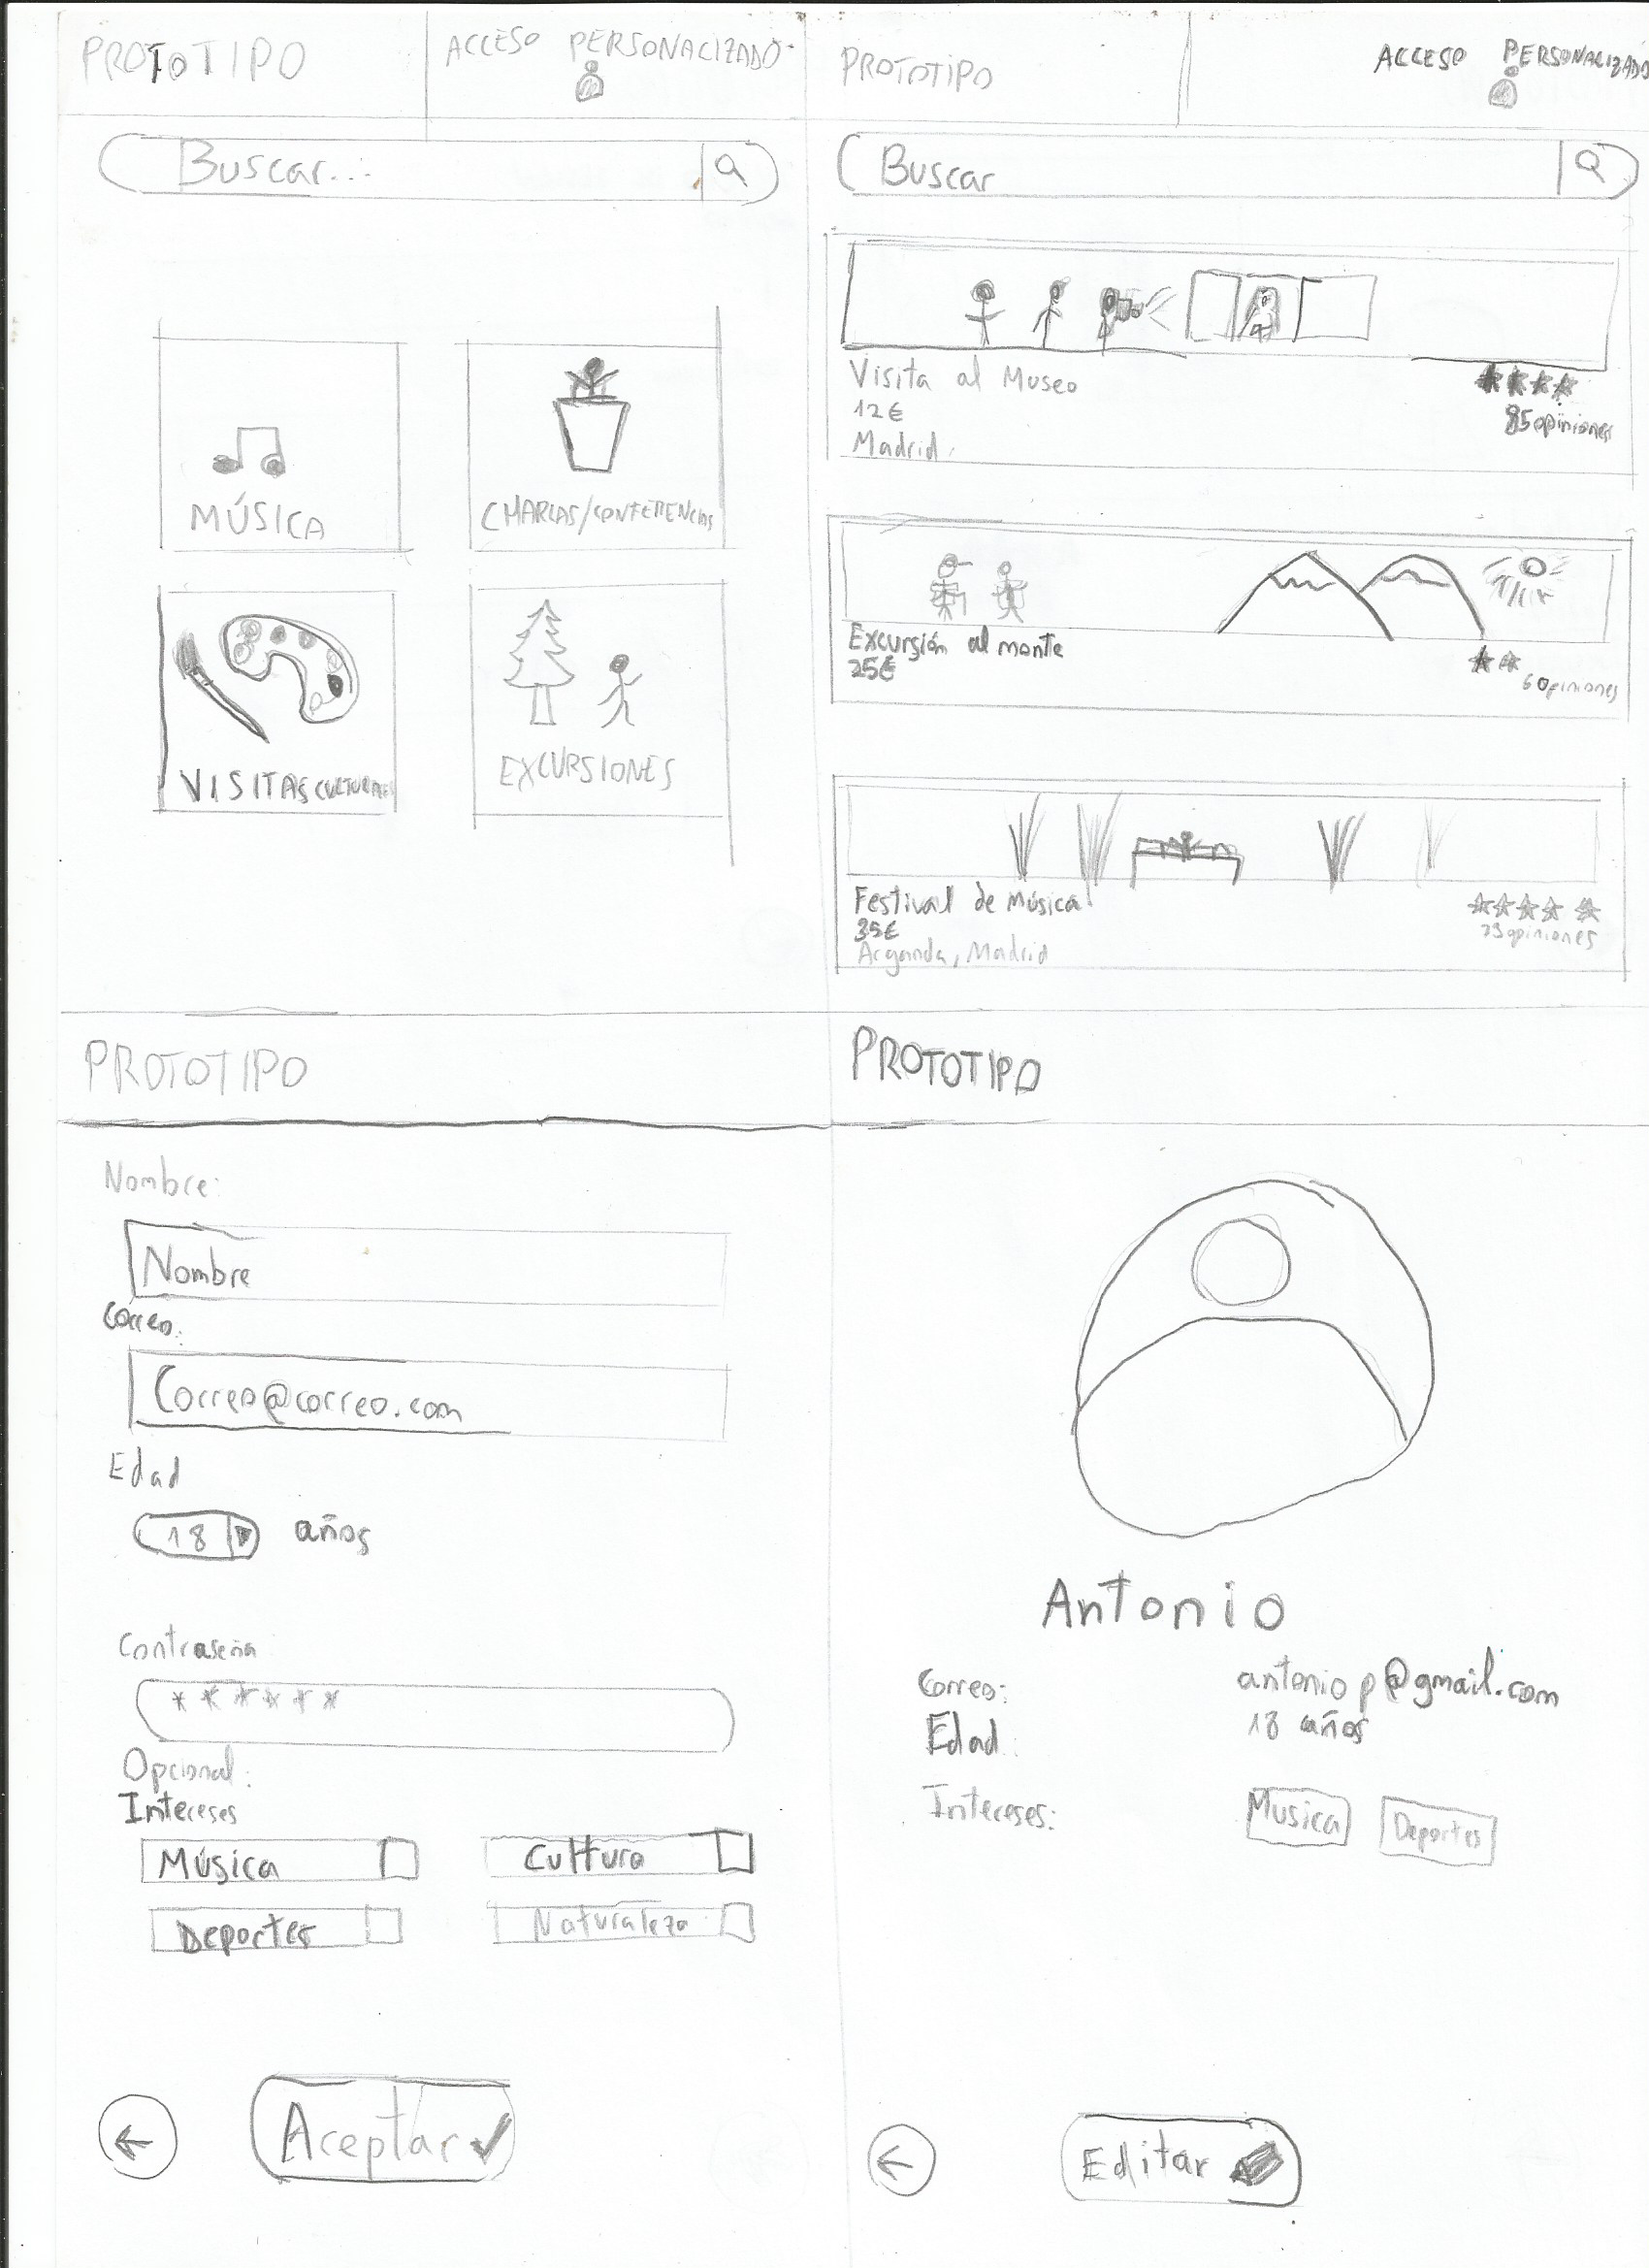 PROTOTIPO
ACCESO PERSONALIZADO
Buscar...
MÚSICA
CHARLAS/CONFERENCIAS
VISITAS CULTURALES
EXCURSIONES
PROTOTIPO
ACCESO PERSONALIZADO
Buscar
Visita al Museo
12€
Madrid.
85 opiniones
Excursión al monte
25€
6 opiniones
Festival de Música
35€
Arganda, Madrid
opiniones
PROTOTIPO
Nombre:
Nombre
Correo:
Correo@correo.com
Edad
18 años
Contraseña
******
Opcional:
Intereses
Música
Cultura
Deportes
Naturaleza
Aceptar
PROTOTIPO
Antonio
Correo: antoniop@gmail.com
Edad: 18 años
Intereses: Musica Deportes
Editar